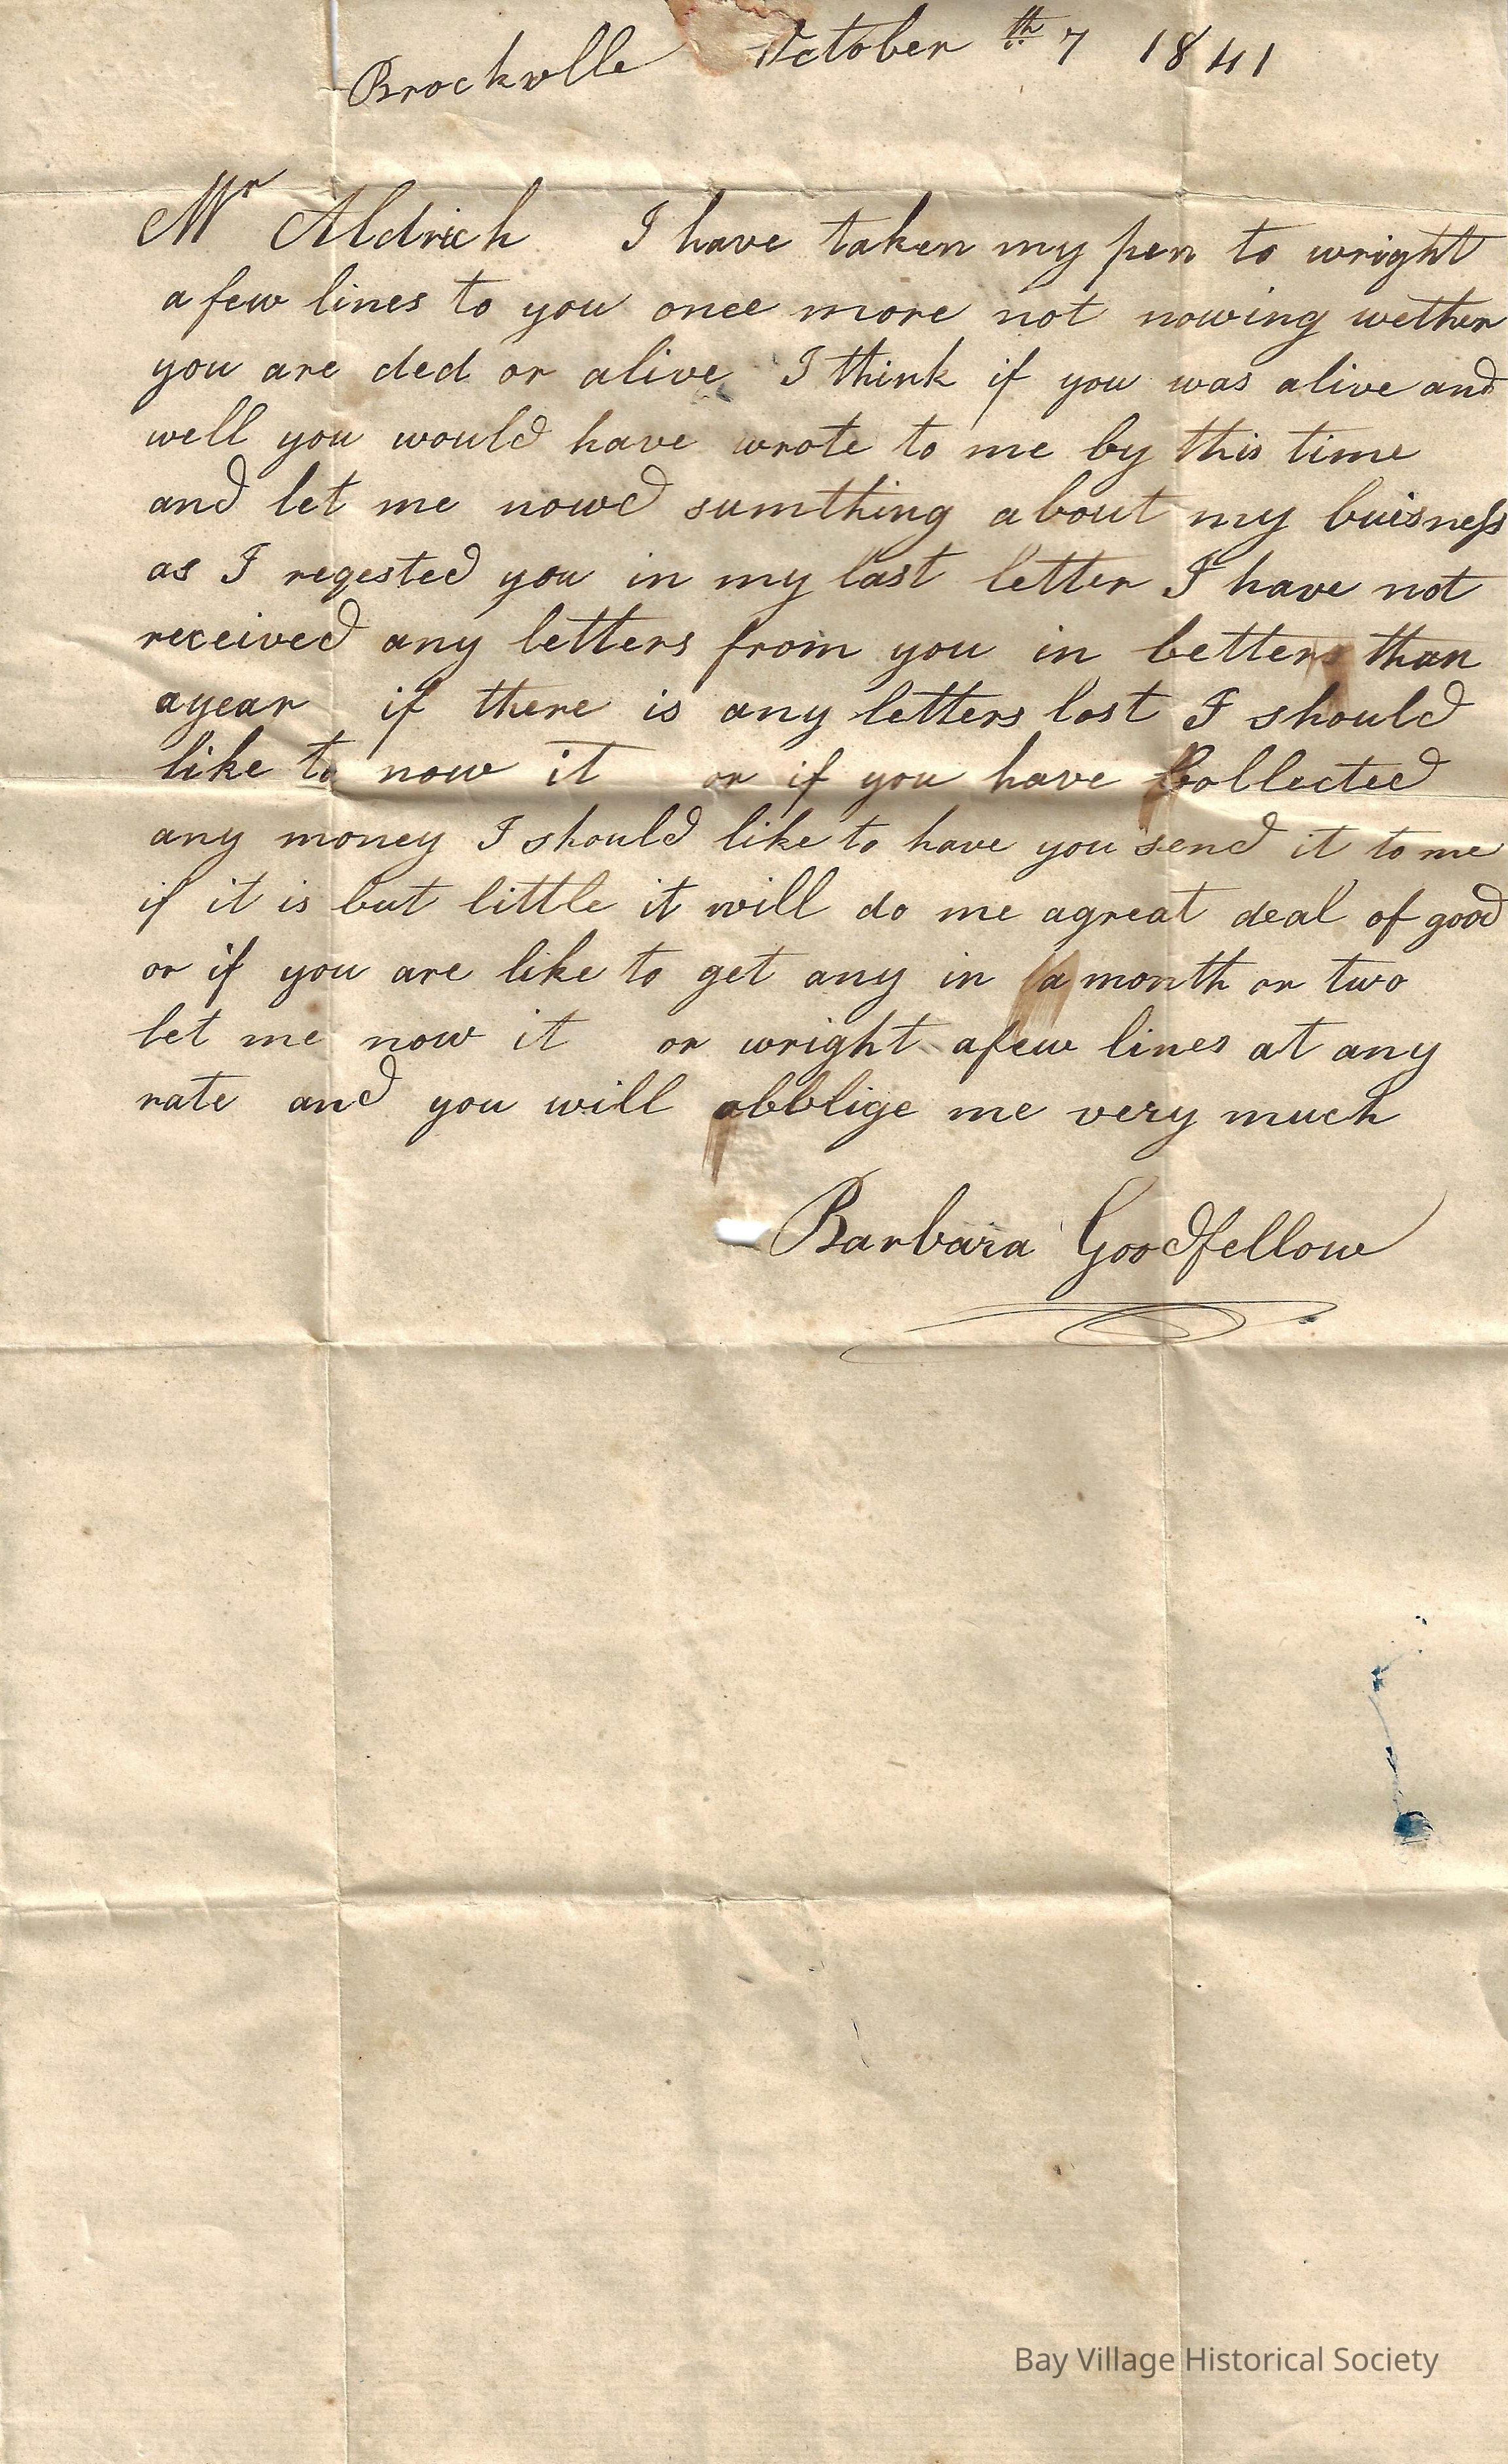 Brockvlle October th 7 1841
Mr Aldrich I have taken my pen to wright
a few lines to you once more not nowing wether
you are ded or alive I think if you was alive and
well you would have wrote to me by this time
and let me nowd sumthing about my buisness
as I reqested you in my last letter I have not
received any letters from you in better than
a year if there is any letters lost I should
like to now it or if you have Collected
any money I should like to have you send it to me
if it is but little it will do me a great deal of good
or if you are like to get any in a month or two
let me now it or wright a few lines at any
rate and you will obblige me very much
Barbara Goodfellow
Bay Village Historical Society